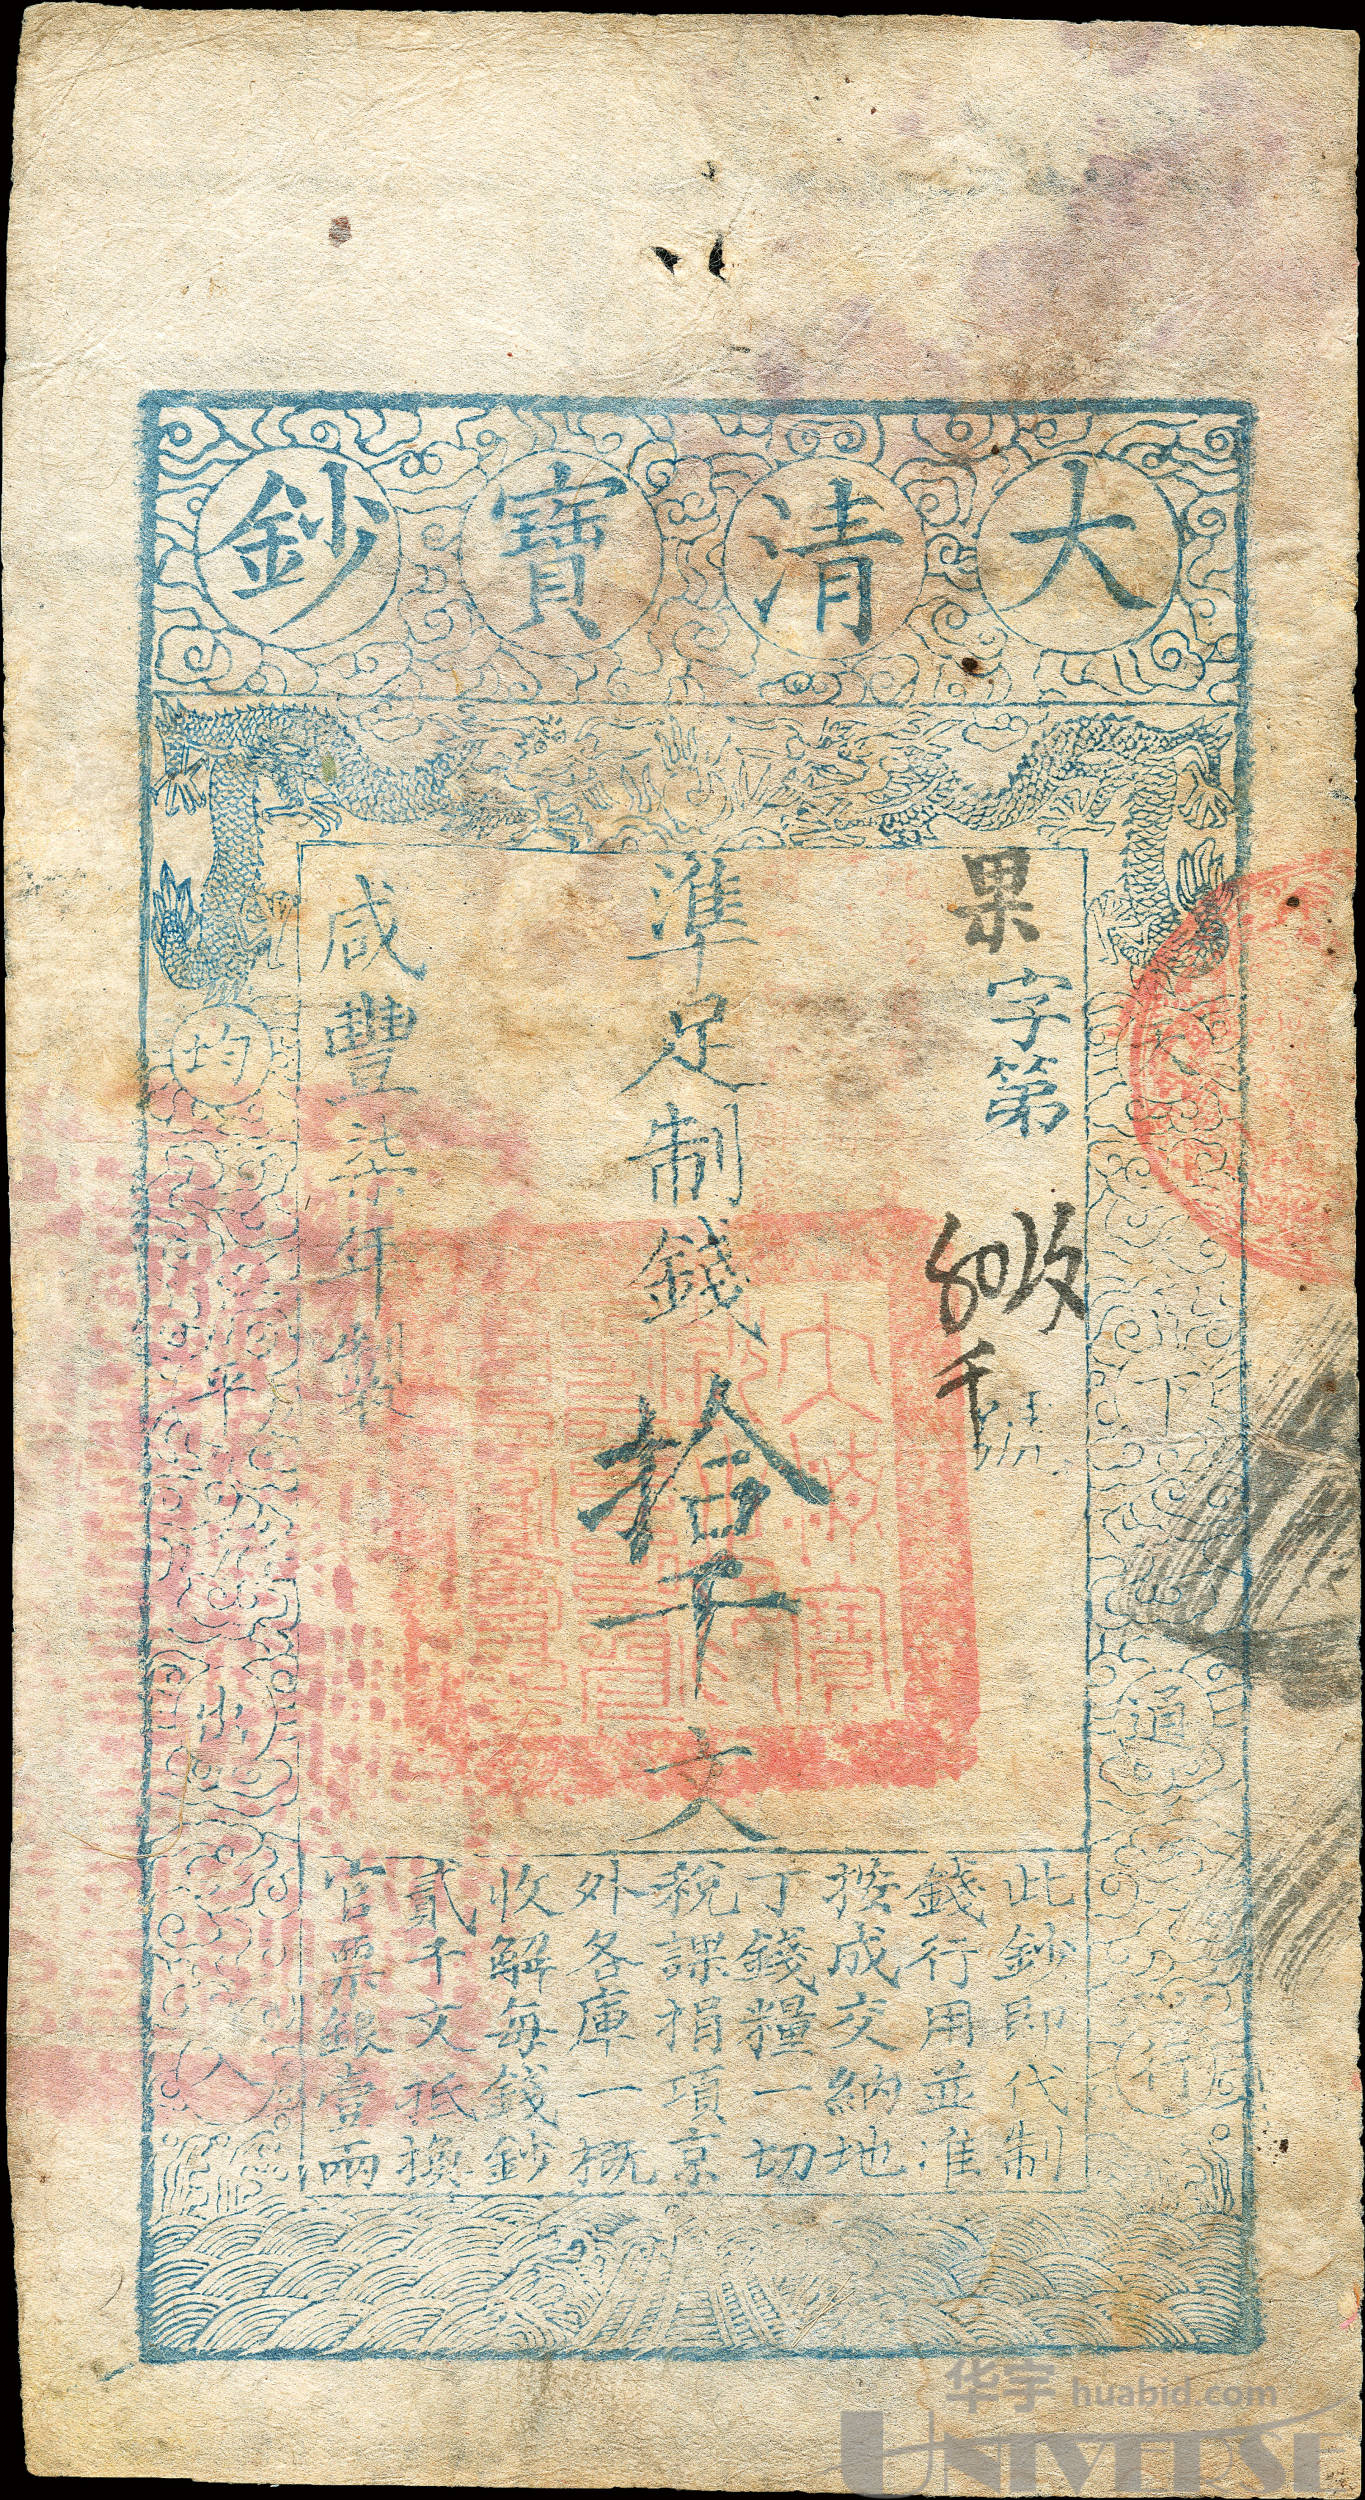 大清寶鈔
天下通行
均平出入
果字第
號
準足制錢拾千文
咸豐柒年製
此鈔即代制
錢行用並准
按成交納地
丁錢糧一切
稅課捐項京
外各庫一概
收解每錢鈔
貳千文抵換
官票銀壹兩
华宇 huabid.com
UNIVERSE